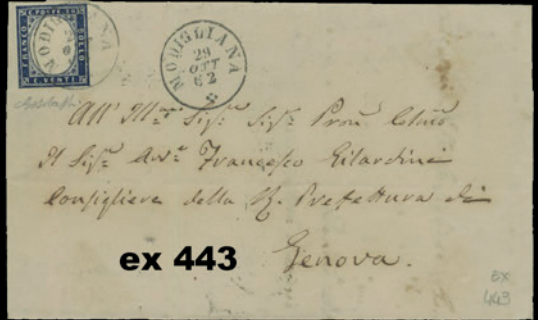 FRANCO POSTE BOLLO
C. VENTI
MODIGLIANA
29
OTT
62
All' Ill.mo Sig.r Sig.r Pron Colmo
Il Sig.r Avv.o Francesco Gilardini
Consigliere della R. Prefettura di
Genova.
ex 443
EX
443